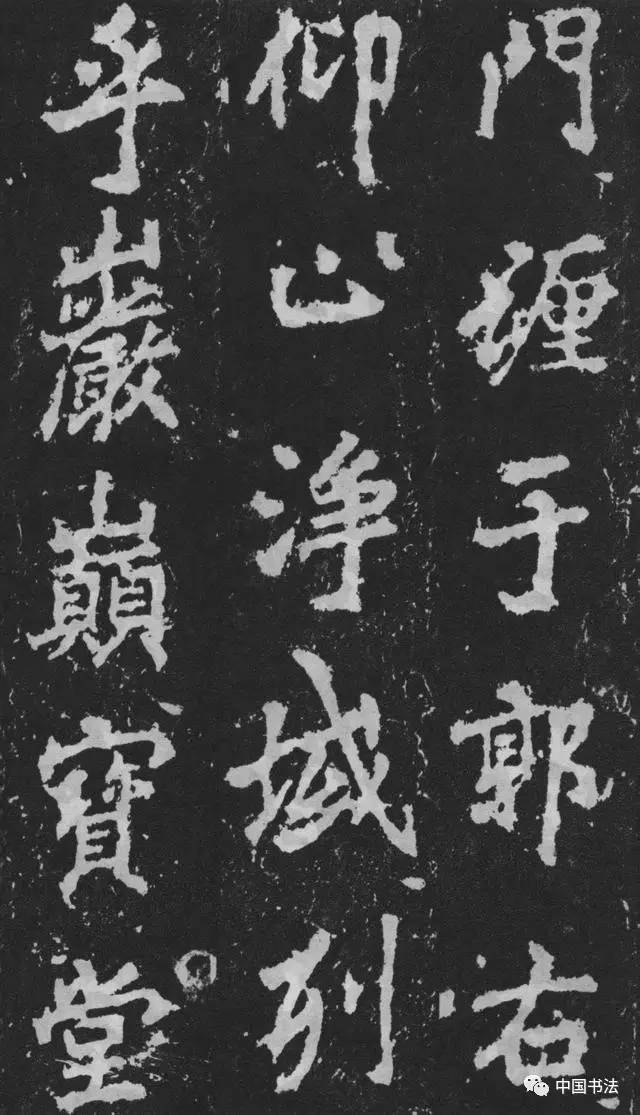 門纏于郭右
仰山淨域列
乎巖巔寶堂
中国书法